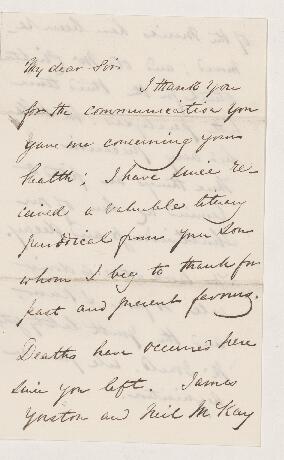 My dear Sir
I thank you
for the communication you
gave me concerning your
health; I have since re-
ceived a valuable literary
periodical from your Son
whom I beg to thank for
past and present favours.
Deaths have occurred here
since you left. James
Yorston and Neil McKay